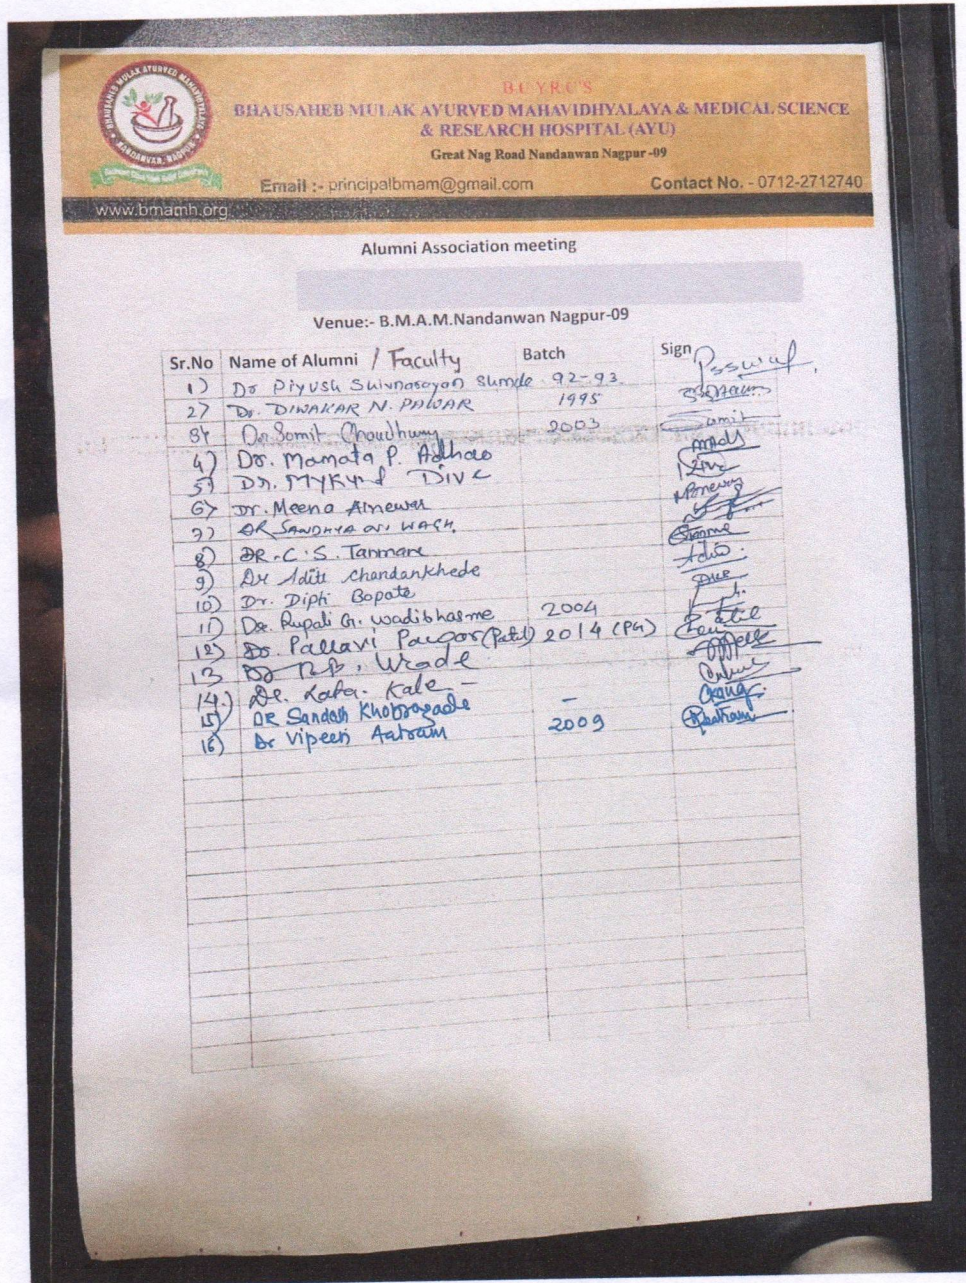 BHAUSAHEB MULAK AYURVED MAHAVIDYALAYA
NANDANVAN, NAGPUR
B.U.Y.R.U'S
BHAUSAHEB MULAK AYURVED MAHAVIDHYALAYA & MEDICAL SCIENCE
& RESEARCH HOSPITAL (AYU)
Great Nag Road Nandanwan Nagpur -09
Email :- principalbmam@gmail.com Contact No. - 0712-2712740
www.bmamh.org
Alumni Association meeting
Venue:- B.M.A.M.Nandanwan Nagpur-09
Sr.No Name of Alumni / Faculty Batch Sign
1) Dr Piyush Shivnarayan 92-93.
2) Dr. DIWAKAR N. PAWAR 1995
3) Dr. Somit Choudhury 2003 Sumit
4) Dr. Mamata P. Adhao
5) Dr. Mykund Dive
6) Dr. Meena Ainewar
7) DR SANDHYA WAGH.
8) DR. C. S. Tanmane
9) Dr Aditi Chandankhede
10) Dr. Dipti Bopate
11) Dr. Rupali G. Wadibhasme 2004
12) Dr. Pallavi Paugar (Patil) 2014 (PG)
13 Dr Wrade
14.) Dr. Lata. Kale -
15) DR Sandesh Khobragade -
16) Dr Vipeen Aatram 2009